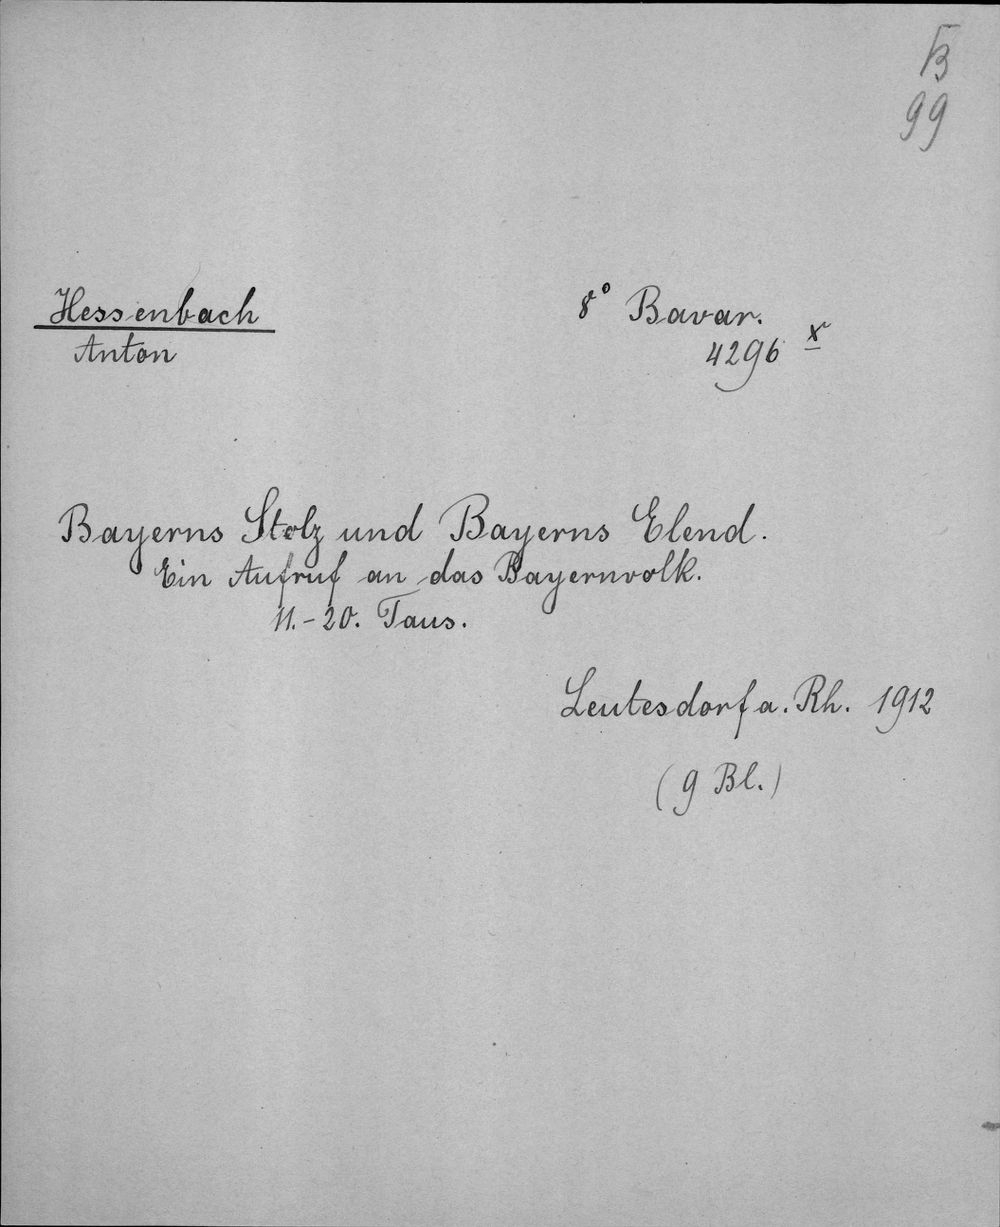 B
99
Hessenbach
8° Bavar.
Anton
4296 x
Bayerns Stolz und Bayerns Elend.
Ein Aufruf an das Bayernvolk.
11.-20. Taus.
Leutesdorf a. Rh. 1912
(9 Bl.)